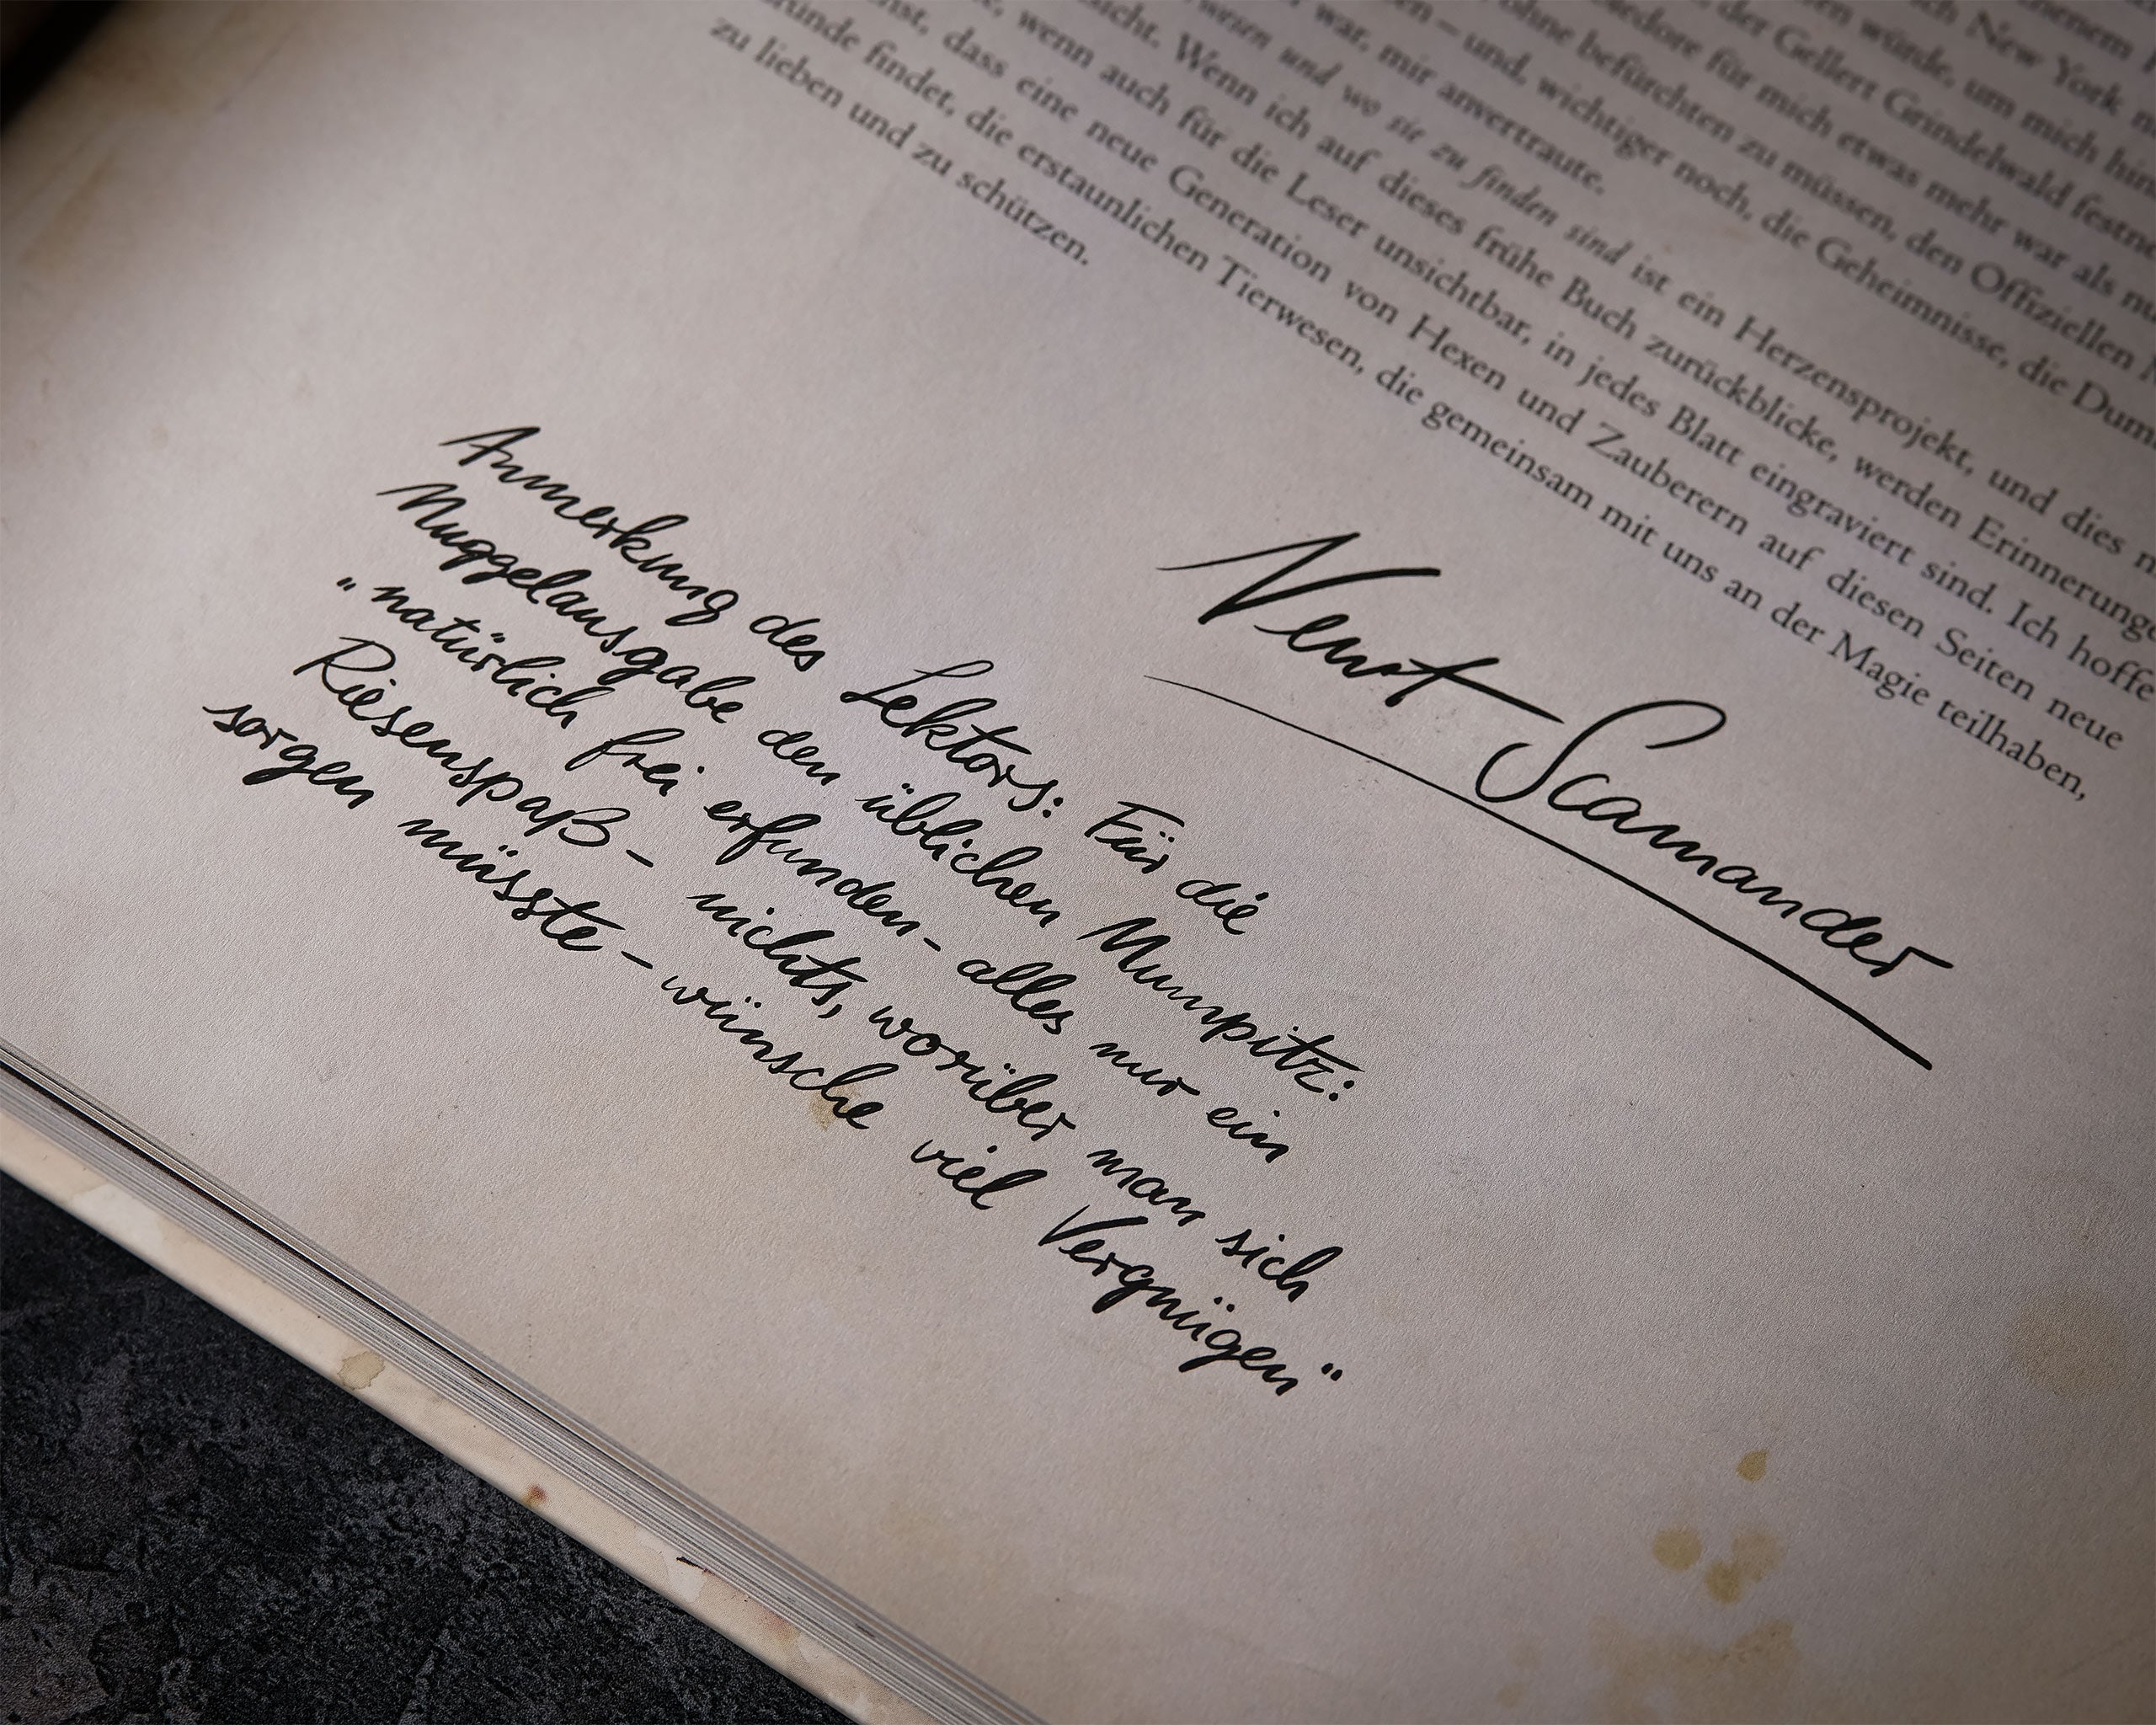 New York
würde, um mich
der Gellert Grindelwald
für mich etwas mehr war als
ohne befürchten zu müssen, den Offiziellen
– und, wichtiger noch, die Geheimnisse, die
war, mir anvertraute.
und wo sie zu finden sind ist ein Herzensprojekt, und dies
Wenn ich auf dieses frühe Buch zurückblicke, werden
wenn auch für die Leser unsichtbar, in jedes Blatt eingraviert sind. Ich hoffe
dass eine neue Generation von Hexen und Zauberern auf diesen Seiten neue
findet, die erstaunlichen Tierwesen, die gemeinsam mit uns an der Magie teilhaben,
zu lieben und zu schützen.
Newt Scamander
Anmerkung des Lektors: Für die
Muggelausgabe den üblichen Mumpitz:
„natürlich frei erfunden – alles nur ein
Riesenspaß – nichts, worüber man sich
sorgen müsste – wünsche viel Vergnügen“